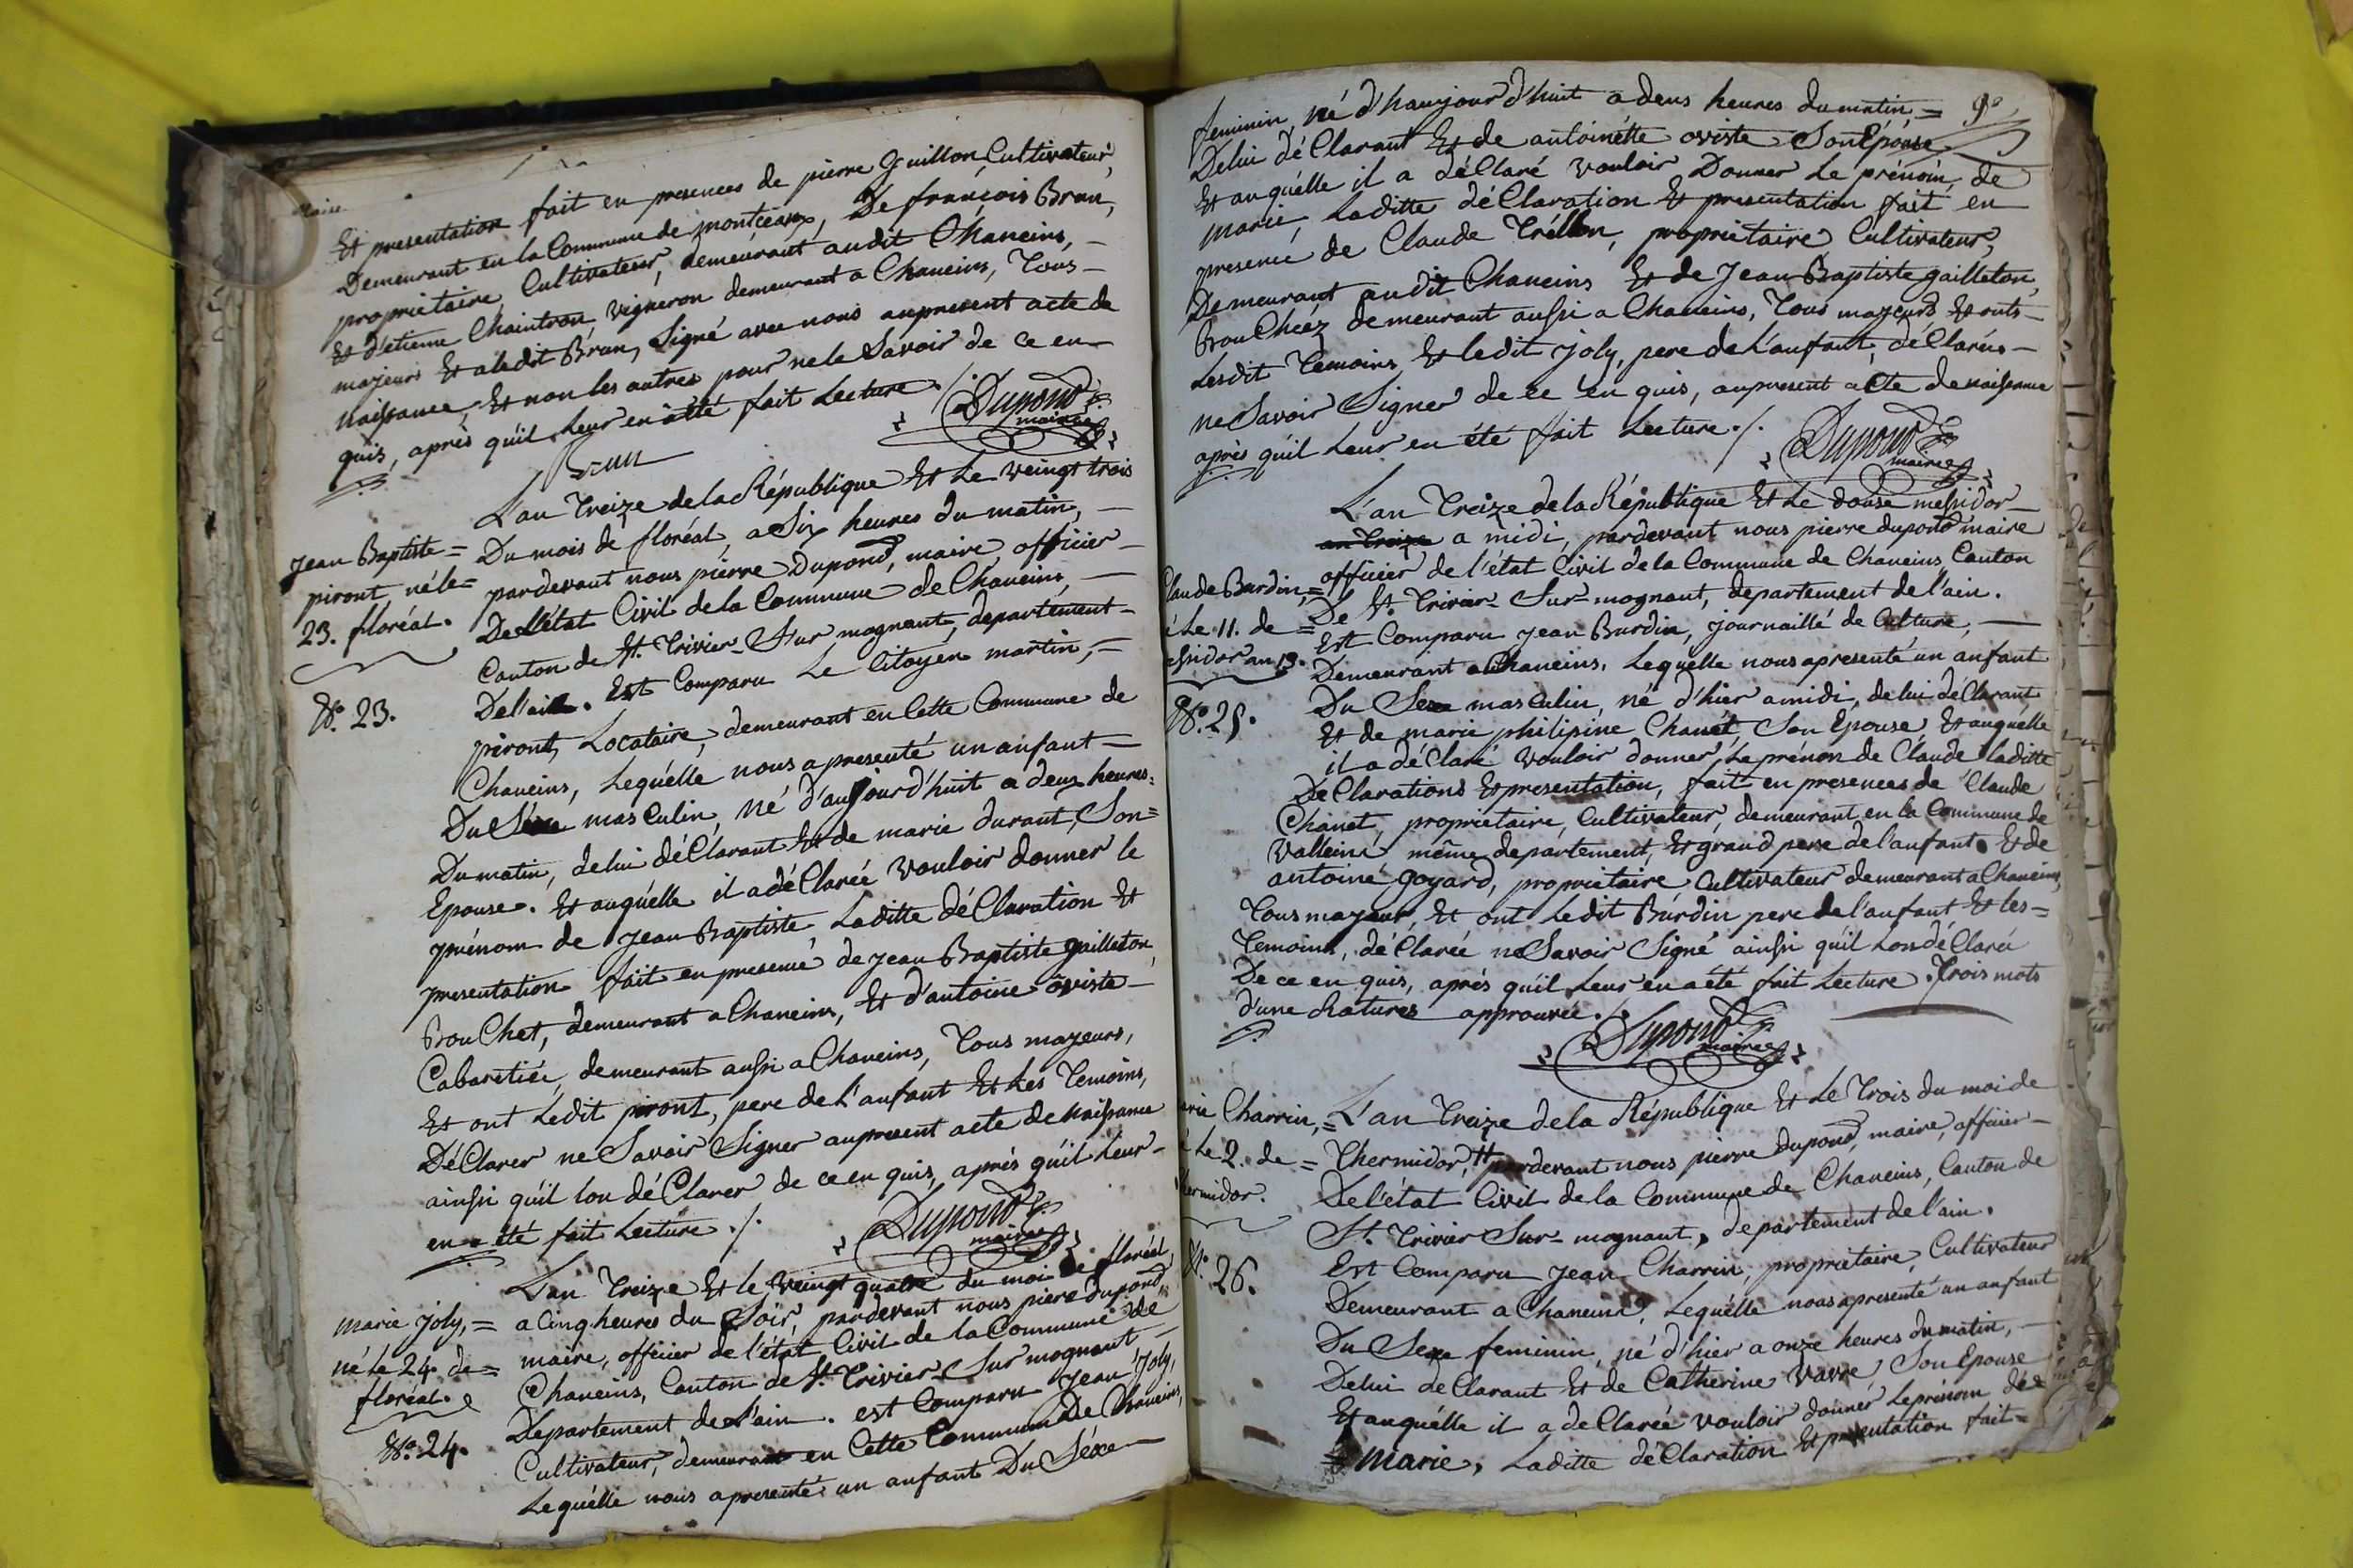 Et presentation fait en presences de pierre Guillon, Cultivateur,
Demeurant en la Commune de montceaux, De françois Brun,
propriétaire, Cultivateur, demeurant audit Chaneins,
Et d'etienne Chaintron vigneron demeurant a Chaneins, Tous
majeurs Et a ledit Brun, Signé avec nous aupresent acte de
Naissance, Et non les autres pour ne le Savoir de ce en
quis, après qu'il Leur en a été fait Lecture ./.
Dupond
maire
Brun
Jean Baptiste =
piront né le =
23. floréal.
N.º 23.
L'an Treize de la République Et Le veingt trois
Du mois de floréal, a Six heures du matin,
pardevant nous pierre Dupond, maire, officier
De L'état Civil de la Commune de Chaneins,
Canton de St. Trivier Sur mognant, departement
De l'ain. Est Comparu Le Citoyen martin,
piront, Locataire, demeurant en Cette Commune de
Chaneins, Lequélle nous a presenté un anfant
Du Séxe masculin, Né d'aujourd'huit a deux heures
Du matin, de lui déClarant Et de marie durant, Son =
Epouse. Et auquélle il a déClarée vouloir donner le
prénom de Jean Baptiste Laditte déClaration Et
presentation fait en presence de Jean Baptiste gailleton,
BouChet, demeurant a Chaneins, Et d'antoine oviste
Cabaretiée, demeurant aussi a Chaneins, Tous majeurs,
Et ont Ledit piront, pere de L'anfant Et Les Temoins,
DéClarer ne Savoir Signer aupresent acte de Naissance
ainsi qu'il lon déClarer de ce en quis, après qu'il Leur
en a été fait Lecture ./.
Dupond
maire
marie Joly, =
né le 24. de =
floréal.
N.º 24.
L'an Treize Et le veingt quatre du moi de floréal,
a Cinq heures du Soir, pardevant nous piere dupond
maire, officier de l'état Civil de la Commune de
Chaneins, Canton de St. Trivier Sur mognant
Departement de L'ain. est Comparu Jean Joly,
Cultivateur, demeurant en Cette Commune De Chaneins,
Lequélle nous a presenté un anfant Du Séxe
feminin né d'haujourd'huit a deux heures du matin =
9º
De lui déClarant Et de antoinétte oviste Son Epouse
Et auquélle il a déClaré vouloir Donner Le prénom de
marie, Laditte déClaration Et presentation fait en
presence de Claude Tréllon, propriétaire Cultivateur,
Demeurant audit Chaneins Et de Jean Baptiste gailleton,
BouChéez demeurant aussi a Chaneins, Tous majeurs Et onts
Lesdit Temoins Et ledit Joly, pere de L'anfant, déClarés
ne Savoir Signer de ce en quis, aupresent aCte de naissance
après qu'il Leur en été fait Lecture ./.
Dupond
maire
Claude Burdin, =
é Le 11. de =
essidor an 13.
N.º 25.
L'an Treize de la République Et Le douse messidor
an treize a midi, pardevant nous pierre dupond maire
officier de l'état Civil de la Commune de Chaneins, Canton
De St. Trivier Sur mognant, departement de l'ain.
Est Comparu Jean Burdin, journaillé de Culture,
Demeurant a Chaneins. Lequélle nous apresenté un anfant
Du Sexe masculin, né d'hier a midi, de lui déClarant
Et de marie philipine Chanét, Son Epouse, Et auquélle
il a déClaré vouloir donner Le prénom de Claude laditte
DéClarations Et presentation, fait en presences de Claude
Chanet, propriétaire, Cultivateur, demeurant en la Commune de
Valleins même departement, Et grand pere de l'anfant. Et de
antoine goyard, propriétaire Cultivateur demeurant a Chaneins,
Tous majeur, Et ont Ledit Burdin pere de l'anfant Et les =
Temoins, déClarée ne Savoir Signé ainsi qu'il Lon déClaré
De ce en quis, après qu'il Leur en a été fait Lecture. Trois mots
d'une Ratures approuvée ./.
Dupond
maire
arie Charrin, =
é Le 2. de =
hermidor.
N.º 26.
L'an Treize de la République Et Le Trois du moi de
Thermidor, pardevant nous pierre dupond, maire, officier
De l'état Civil de la Commune de Chaneins, Canton de
St. Trivier Sur mognant, departement de l'ain.
Est Comparu Jean Charrin, propriétaire, Cultivateur
Demeurant a Chaneins, Lequélle nous apresenté un anfant
Du Sexe feminin, né d'hier a onze heures du matin,
De lui deClarant Et de Catherine vavre, Son Epouse
Et auquélle il a deClarée vouloir donner Leprénom de
marie, Laditte déClaration Et presentation fait =